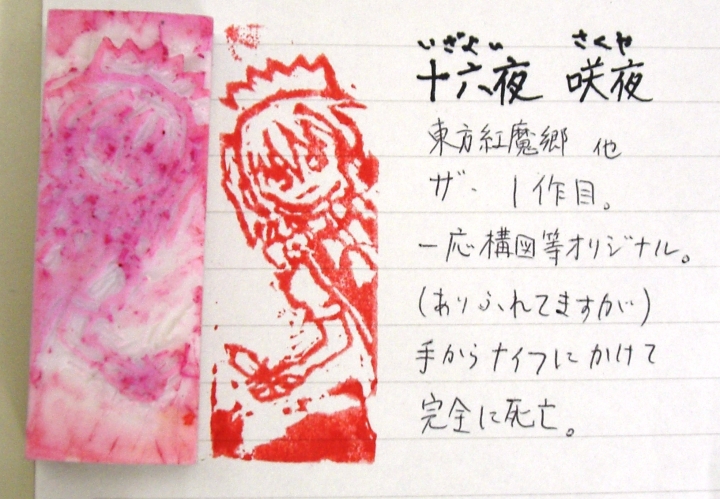 いざよい さくや
十六夜 咲夜
東方紅魔郷 他
ザ・1作目。
一応構図等オリジナル。
(ありふれてますが)
手からナイフにかけて
完全に死亡。